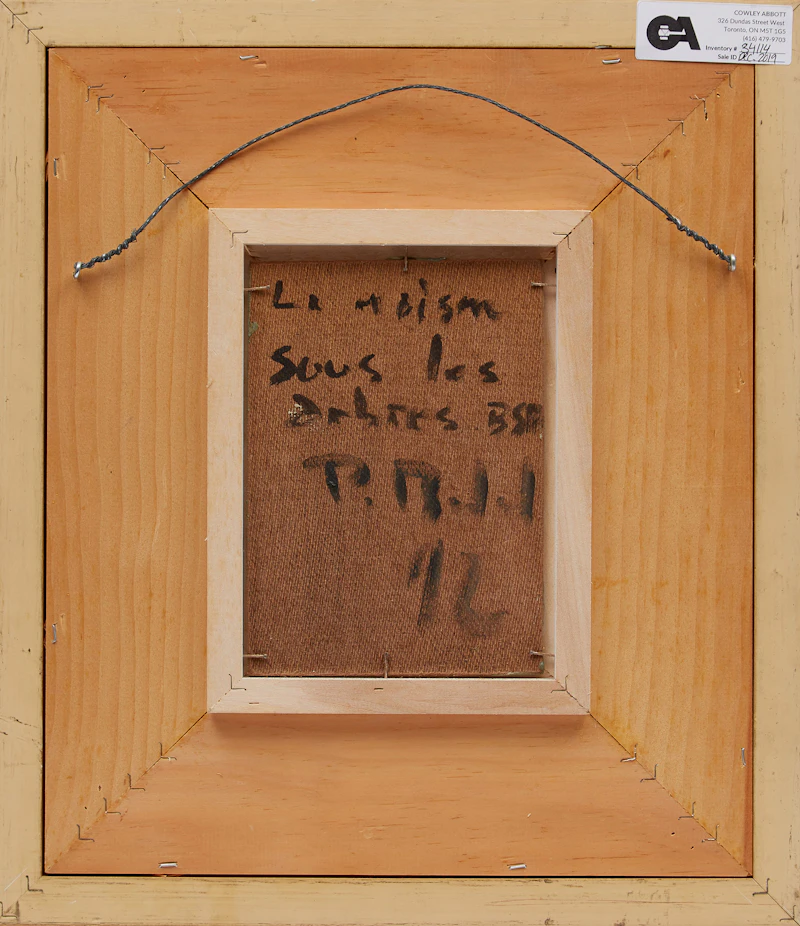 COWLEY ABBOTT
326 Dundas Street West
Toronto, ON M5T 1G5
(416) 479-9703
Inventory # 34114
Sale ID DEC. 2019
CA
La maison
sous les
arbres BSP
P.